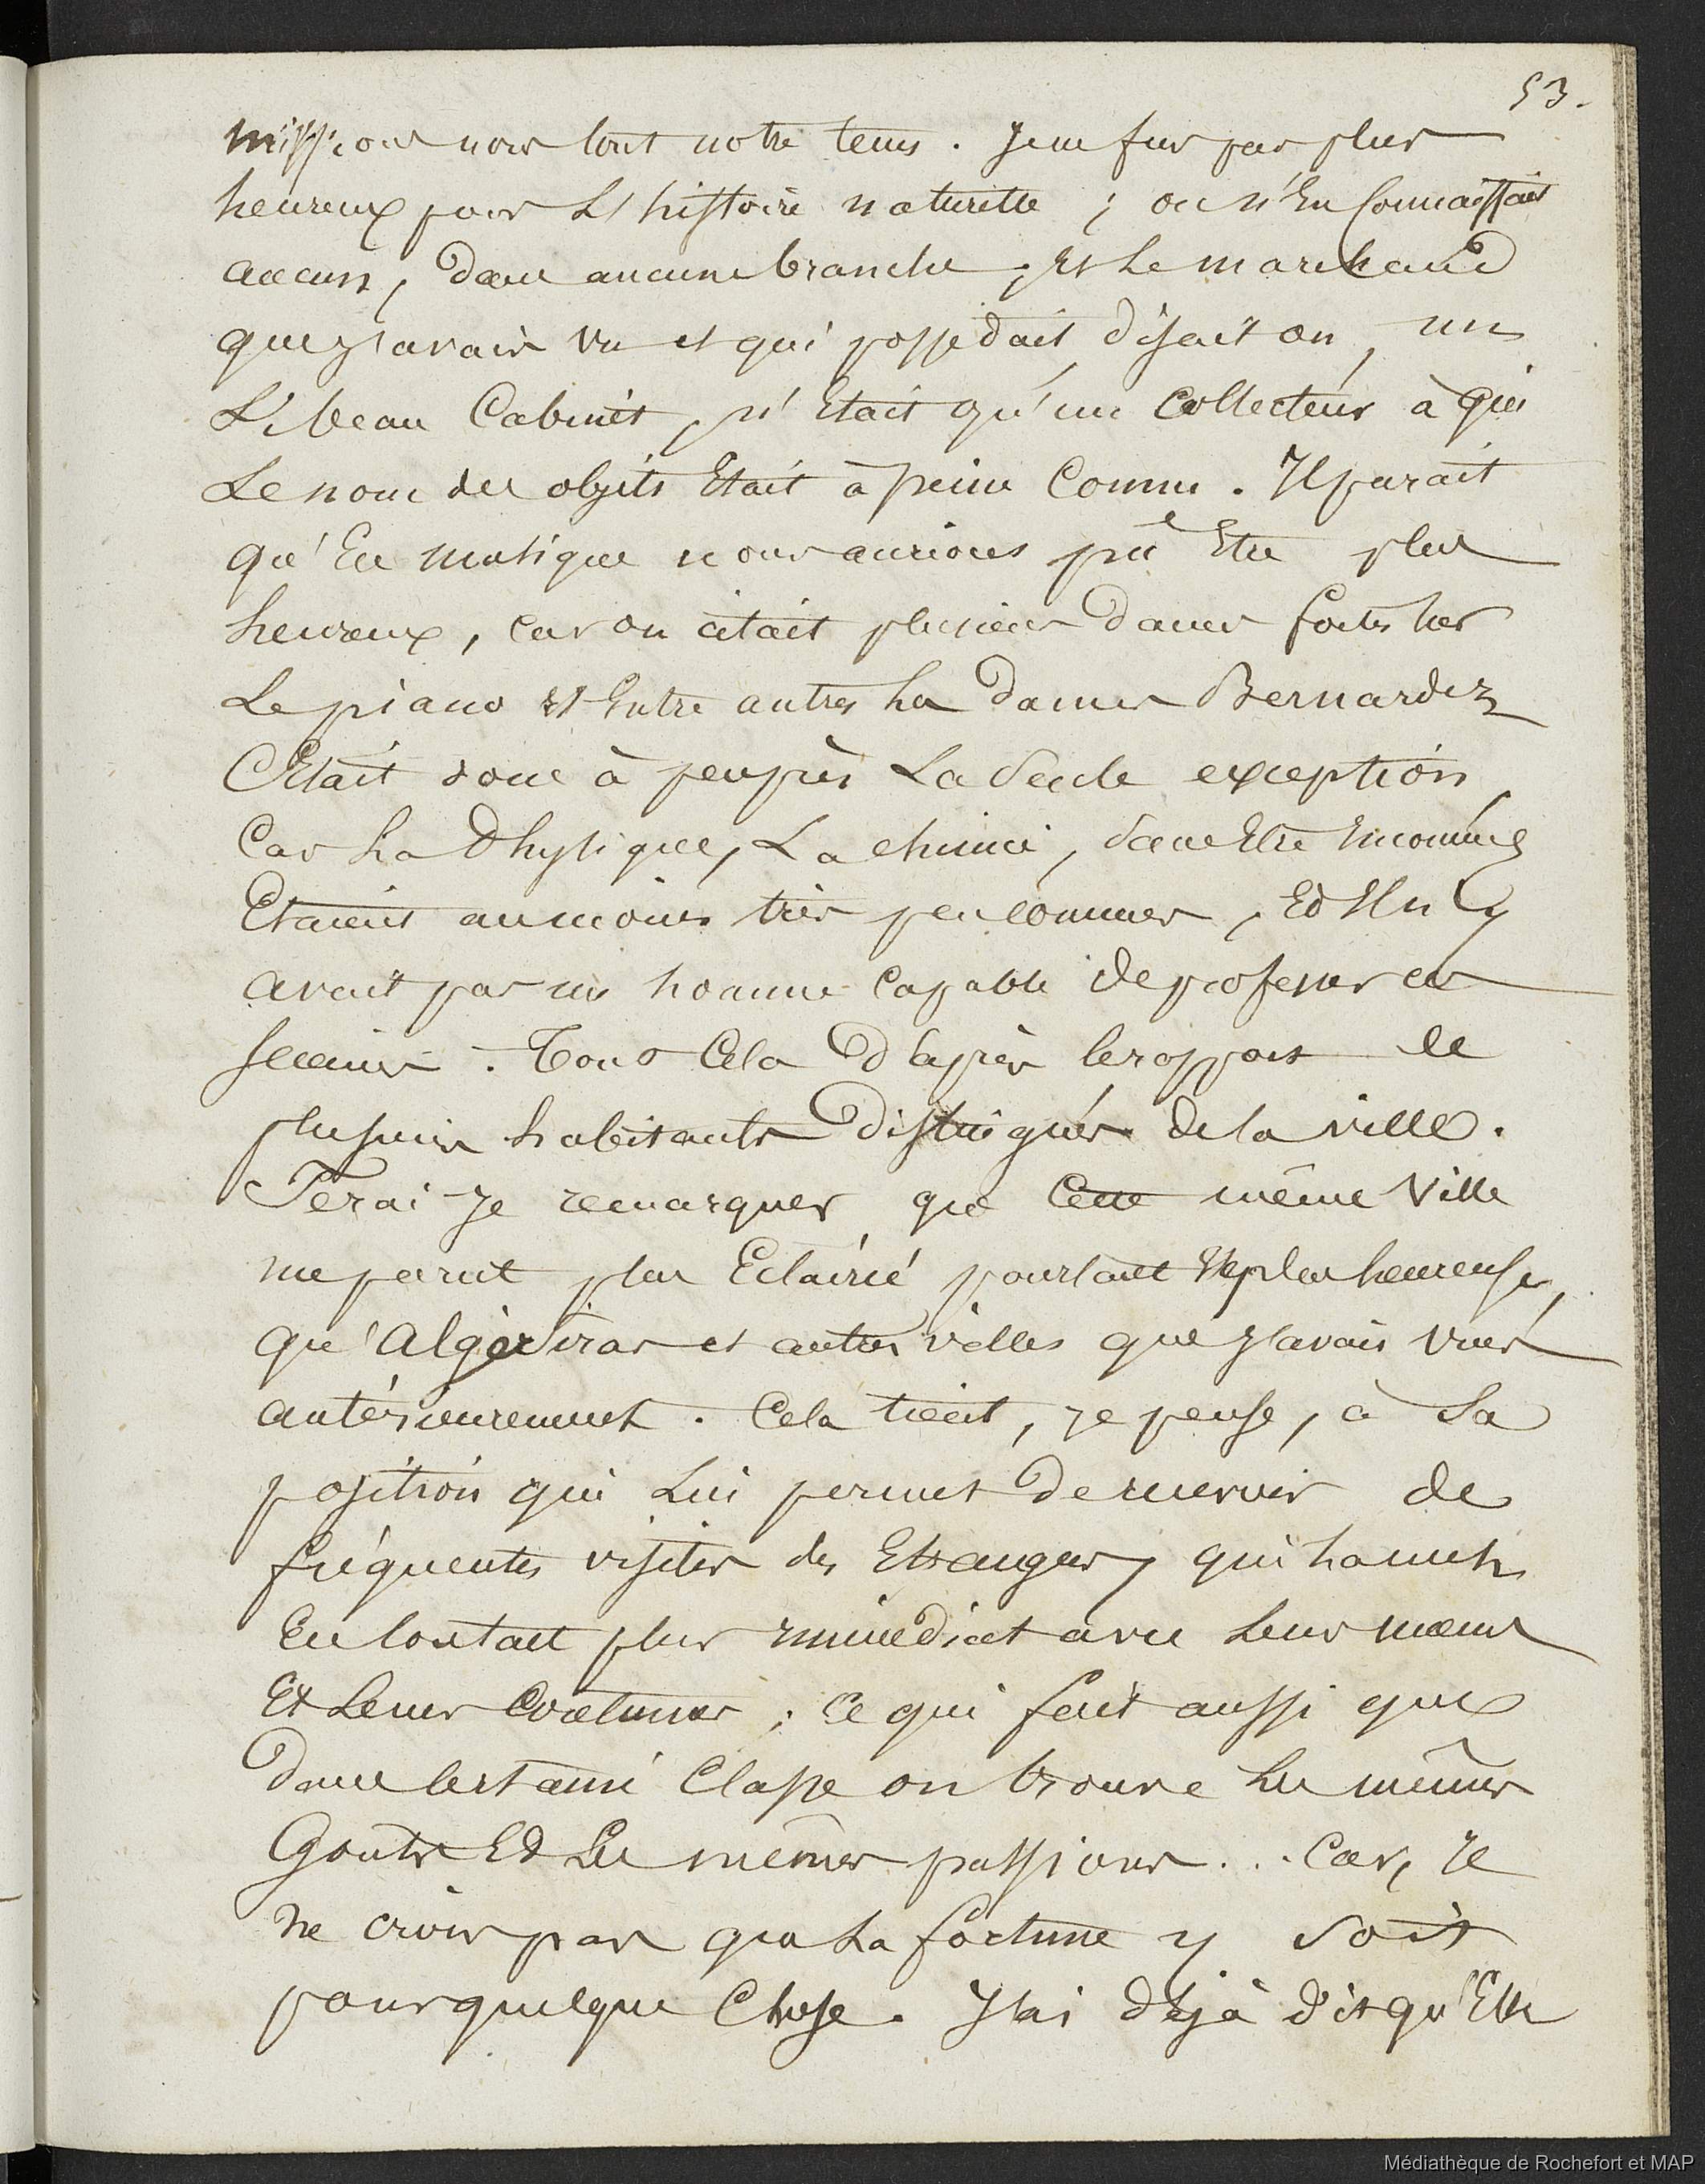 53.
missions nous tout notre tems. Je ne fus pas plus
heureux pour L'histoire naturelle ; on n'En Connaissait
aucun, dans aucune branche ; Et Le marchand
que j'avais vu et qui possedait, disait on, un
Si beau Cabinet, n'Etait qu'un Collecteur à qui
Le nom des objets Etait à peine Connu. Il parait
qu'En musique nous aurions pû Etre plus
heureux, car on citait plusieurs dames fortes sur
Le piano Et Entre autres La dames Bernardez
C'Etait donc à peu près La Seule exception
Car La Physique, La chimie, sans Etre Inconnues
Etaient au moins très peu connues, Et Il n'y
avait pas un homme Capable de professer ces
sciences. Tout Cela d'après le rapport de
plusieurs habitants distingués de la ville.
Ferai-Je remarquer que Cette même Ville
me parut plus Eclairée pourtant Et plus heureuse,
qu'Algésiras et autres villes que j'avais vues
antérieurement. Cela tient, je pense, à Sa
position qui Lui permet de recevoir de
fréquentes visites des Etrangers, qui La met
En Contact plus immédiat avec Leurs moeurs
Et Leurs Coutumes ; Ce qui fait aussi que
dans certaine Classe on trouve Les mêmes
Goûts Et Les mêmes passions... Car, Je
ne crois pas que La fortune y soit
pour quelque Chose. J'ai déjà dit qu'Elle
Médiathèque de Rochefort et MAP